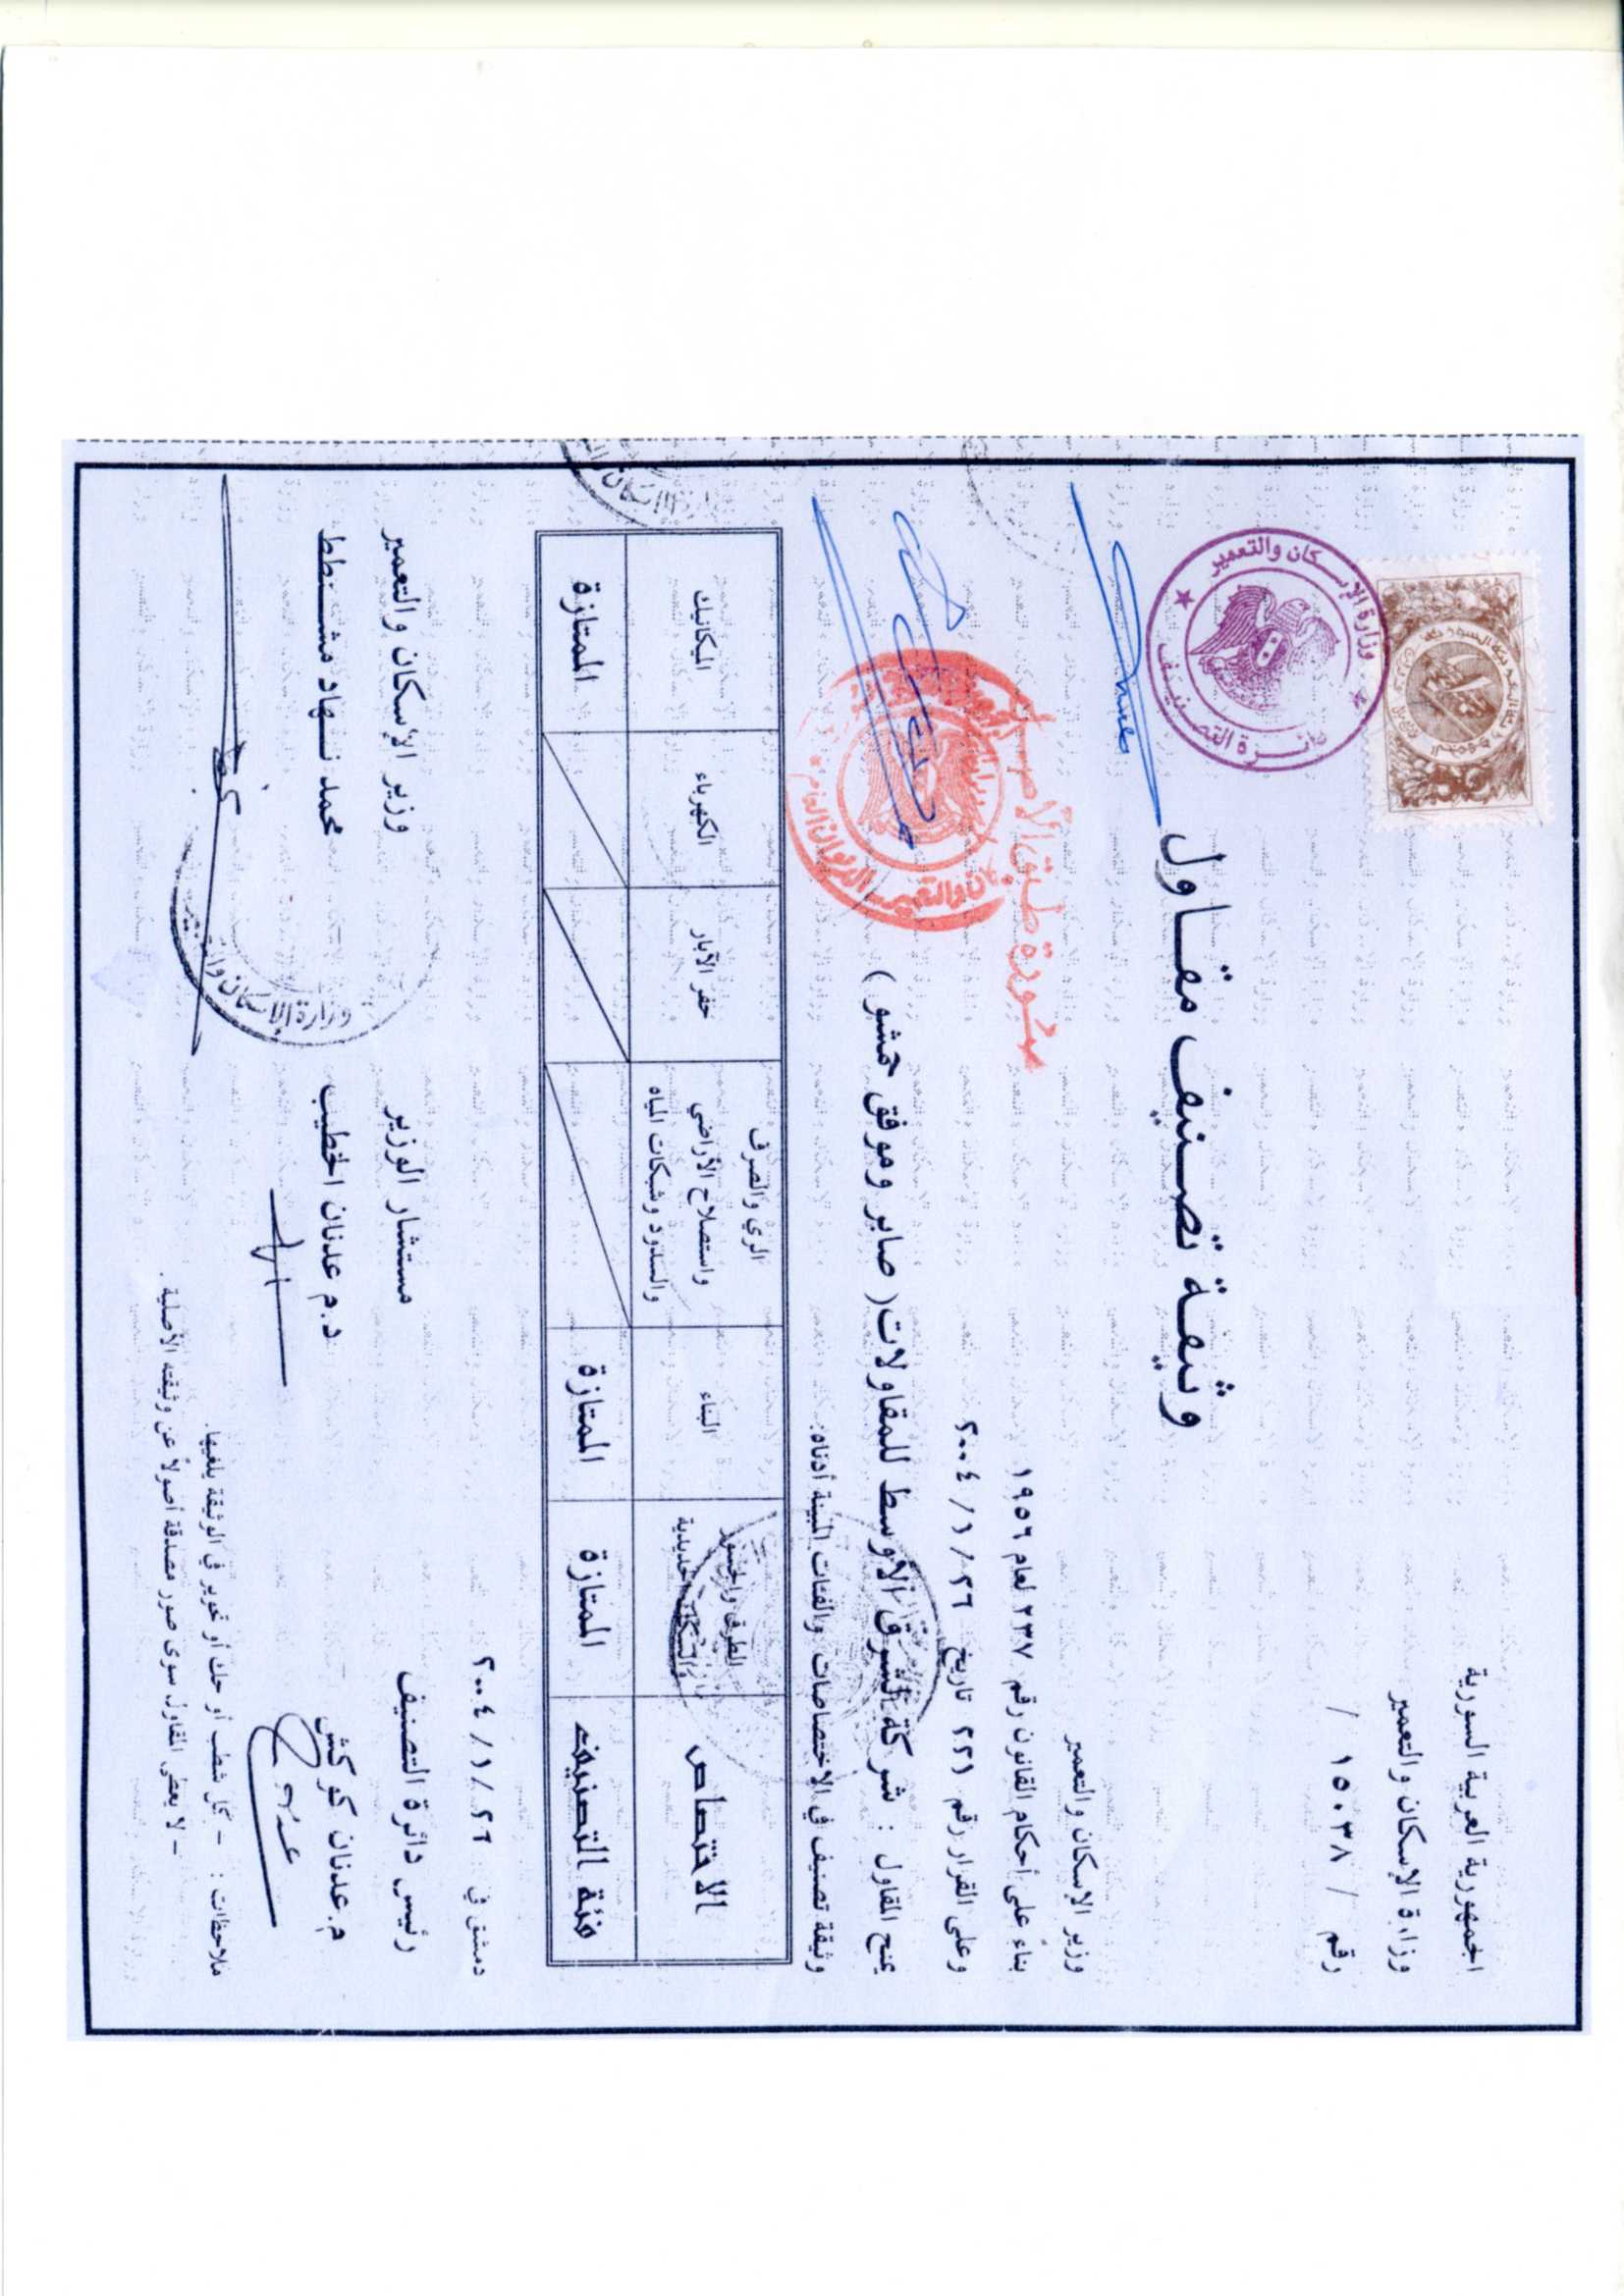 الجمهورية العربية السورية
وزارة الإسكان والتعمير
رقم / ١٥٠٣٨ /
وزارة الإسكان والتعمير
دائرة التصنيف
وثيقة تصنيف مقاول
وزير الإسكان والتعمير
بناء على أحكام القانون رقم ٢٣٧ لعام ١٩٥٦
وعلى القرار رقم ٢٢١ تاريخ ٢٦ / ١ / ٢٠٠٤
صورة طبق الأصل
يمنح المقاول : شركة الشرق الأوسط للمقاولات ( صابر وموفق حمشو )
وثيقة تصنيف في الاختصاصات والفئات المبينة أدناه:
الاختصاص
الطرق والجسور والسكك الحديدية
البناء
الري والصرف واستصلاح الأراضي والسدود وشبكات المياه
حفر الآبار
الكهرباء
الميكانيك
فئة التصنيف
الممتازة
الممتازة
الممتازة
دمشق في ٢٦ / ١ / ٢٠٠٤
رئيس دائرة التصنيف
مستشار الوزير
وزير الإسكان والتعمير
م.عدنان كوكش
د.م عدنان الخطيب
محمد نهاد مشنطط
ملاحظات : - كل شطب أو حك أو تحوير في الوثيقة يلغيها.
- لا يعطى المقاول سوى صور مصدقة أصولاً عن وثيقته الأصلية .